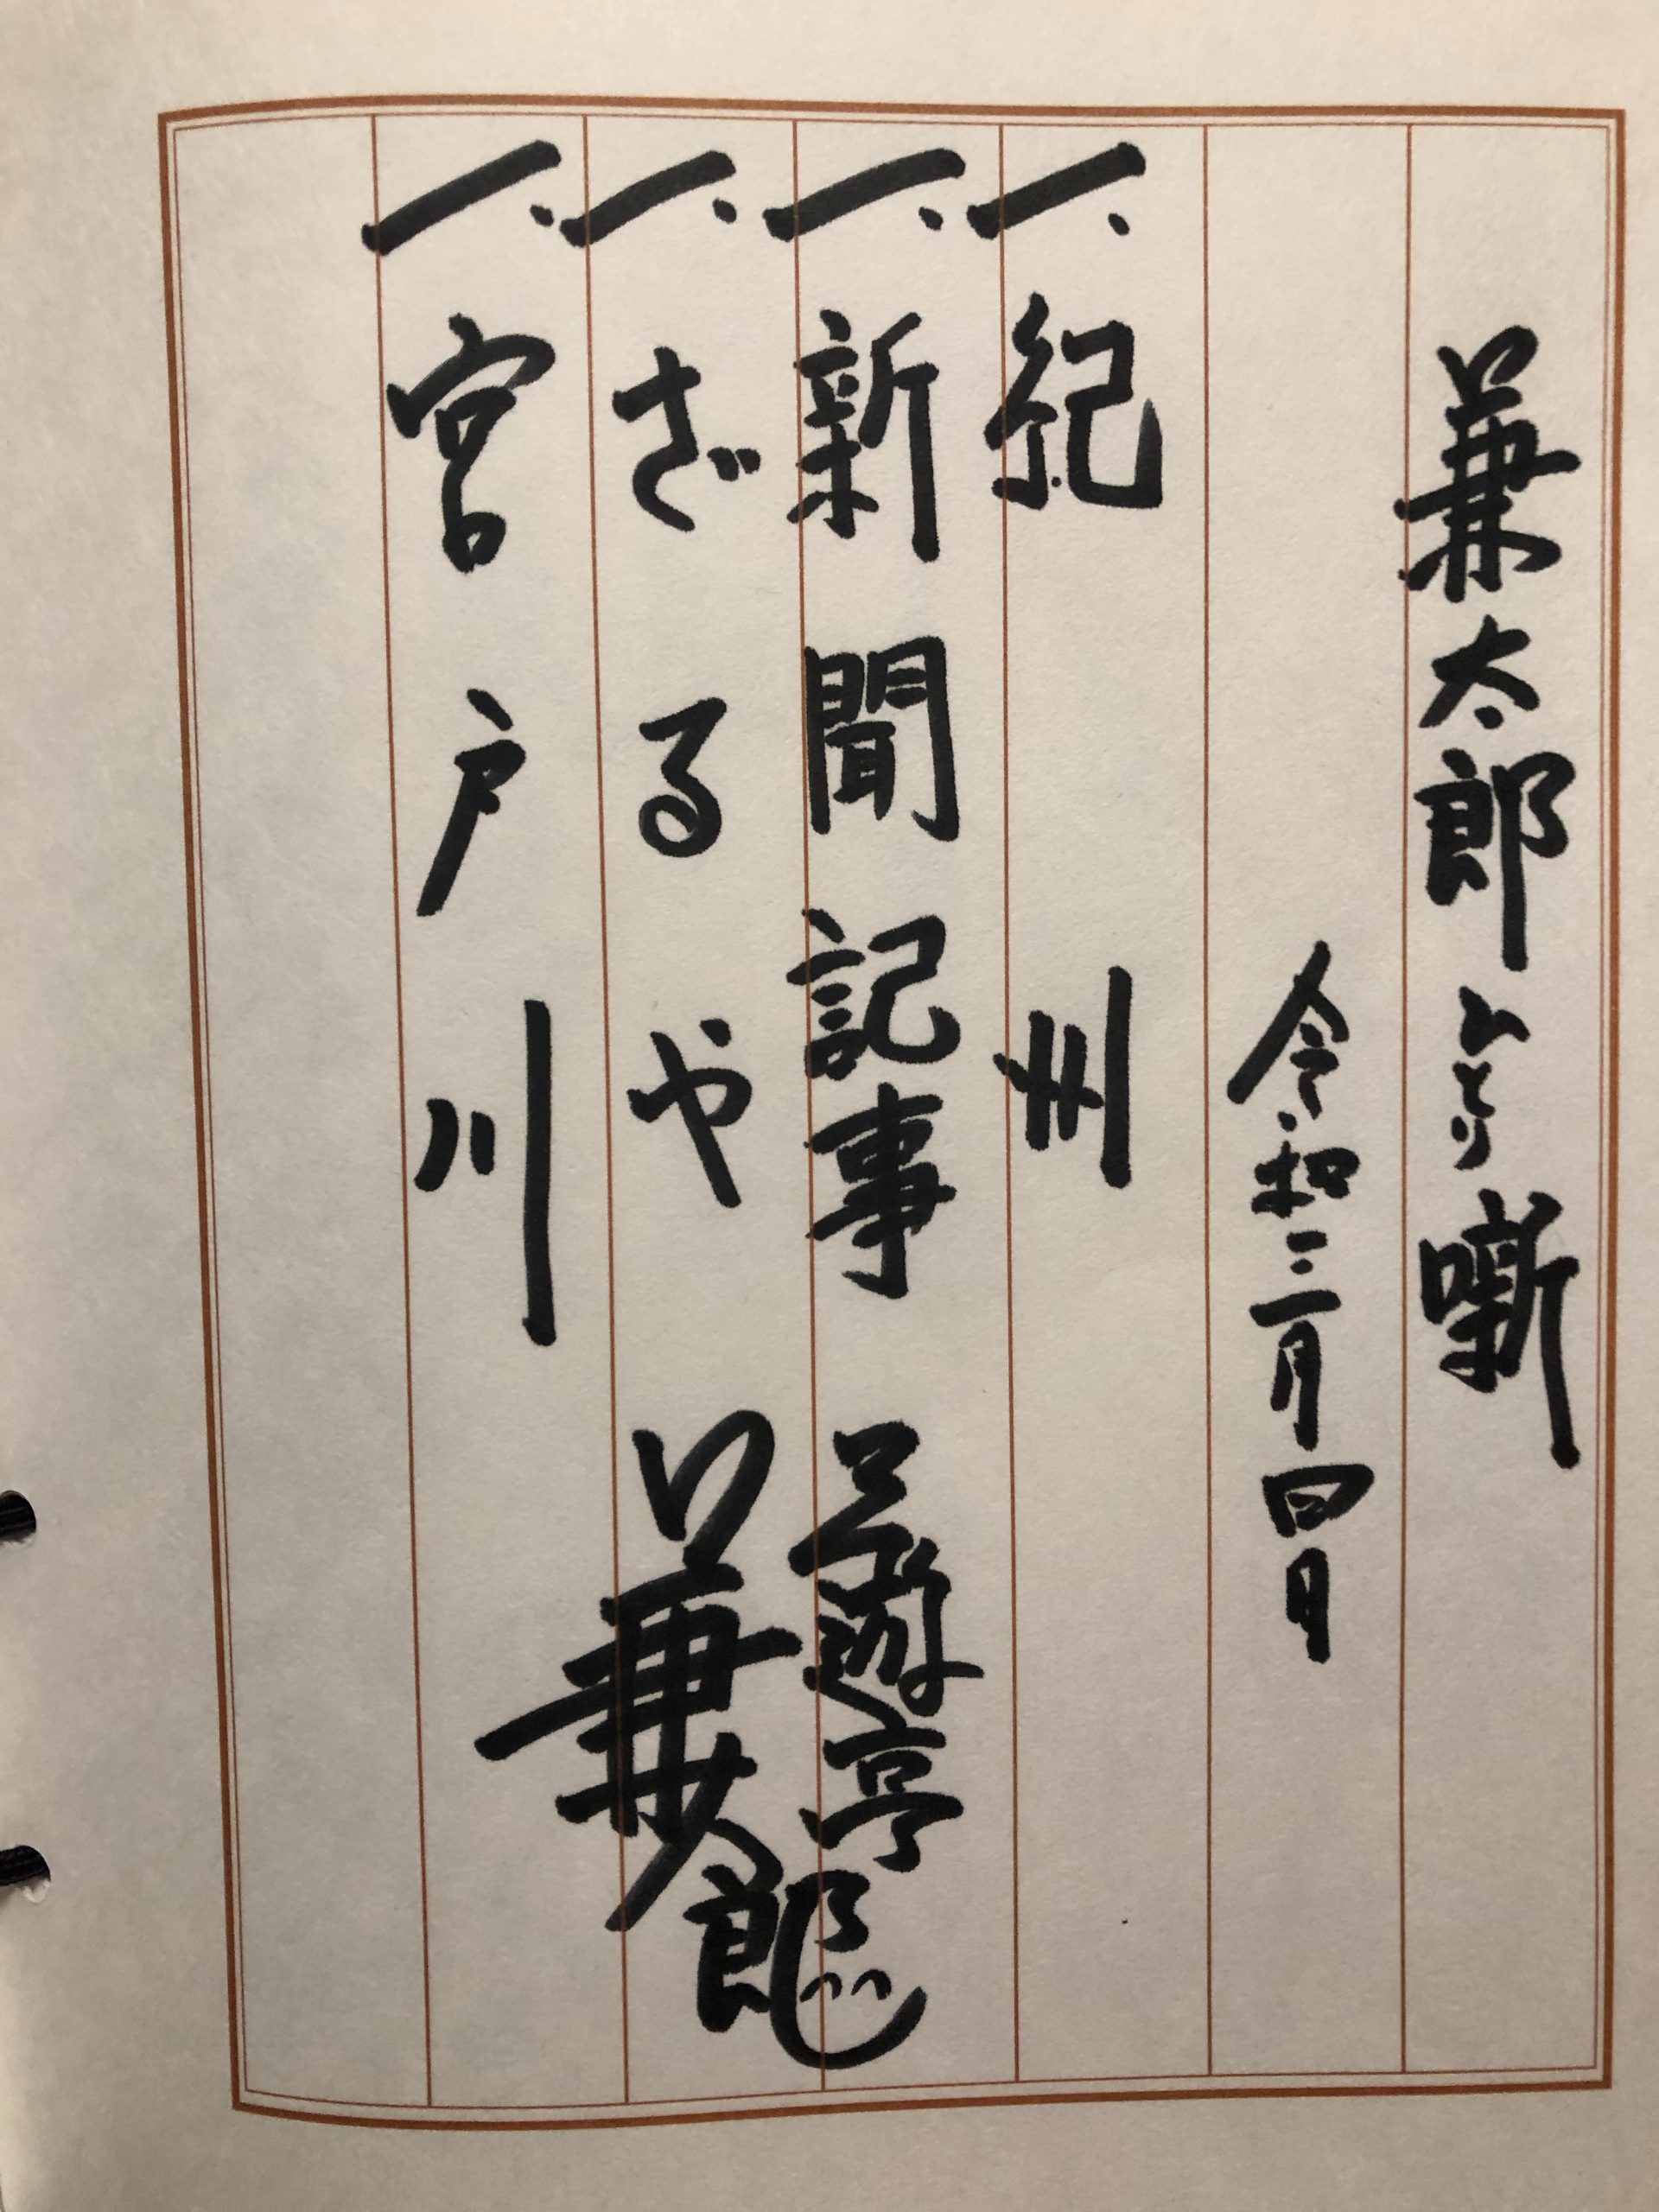 兼太郎ひとり噺
令和 月四日
一、紀州
一、新聞記事
一、ざるや
一、宮戸川
三遊亭
兼太郎